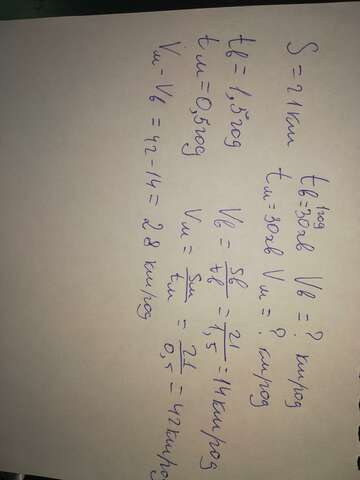 S = 21 км
1год
tв = 30хв Vв = ? км/год
tм = 30хв Vм = ? км/год
tв = 1,5 год
tм = 0,5 год
Vв = Sв/tв = 21/1,5 = 14 км/год
Vм = Sм/tм = 21/0,5 = 42 км/год
Vм - Vв = 42 - 14 = 28 км/год